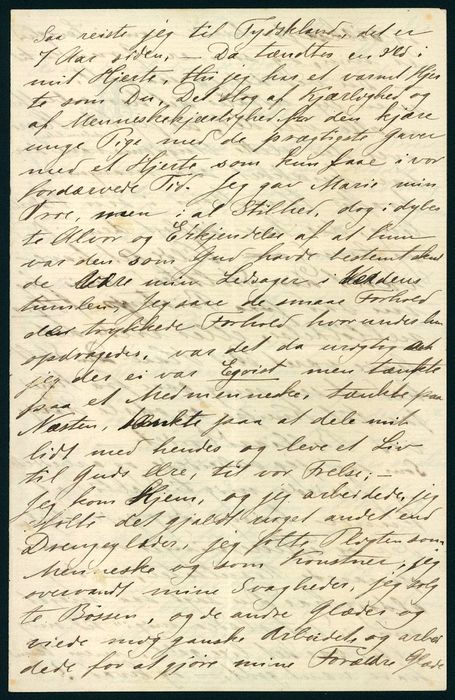 Saa reiste jeg til Tydskland, det er
7 Aar siden, – Da tændtes en Ild i
mit Hjerte, thi jeg har et varmt Hjer-
te som Du, Det slog af Kjærlighed og
af Menneskekjærlighed for den kjære
unge Pige med de prægtigste gaver
med et Hjerte som kun faae i vor
fordærvede Tid. Jeg gav Marie min
Troe, men i al Stilhed, dog i dybes
te Alvor og Erkjendelse af at hun
var den som Gud havde bestemt skul
de være min Ledsager i Verdens
tumlen, Jeg saae de smaae Forhold
de trykkede Forhold hvorunder hun
opdragedes, var det da
jeg der ei var Egoist men tænkte
paa et Medmenneske, tænkte paa
Næsten, tænkte paa at dele mit
lidt med hendes og leve et Liv
til Guds Ære, til vor Frelse; –
Jeg kom Hjem, og jeg arbeidede, jeg
følte det gjaldt noget andet end
Drengeglæder, jeg følte Pligten som
Menneske og som Konstner, jeg
overvandt mine Svagheder, jeg solg
te Bøssen, og de andre Glæder og
viede mig ganske Arbeidet, og arbei
dede for at gjøre mine Forældre Glade